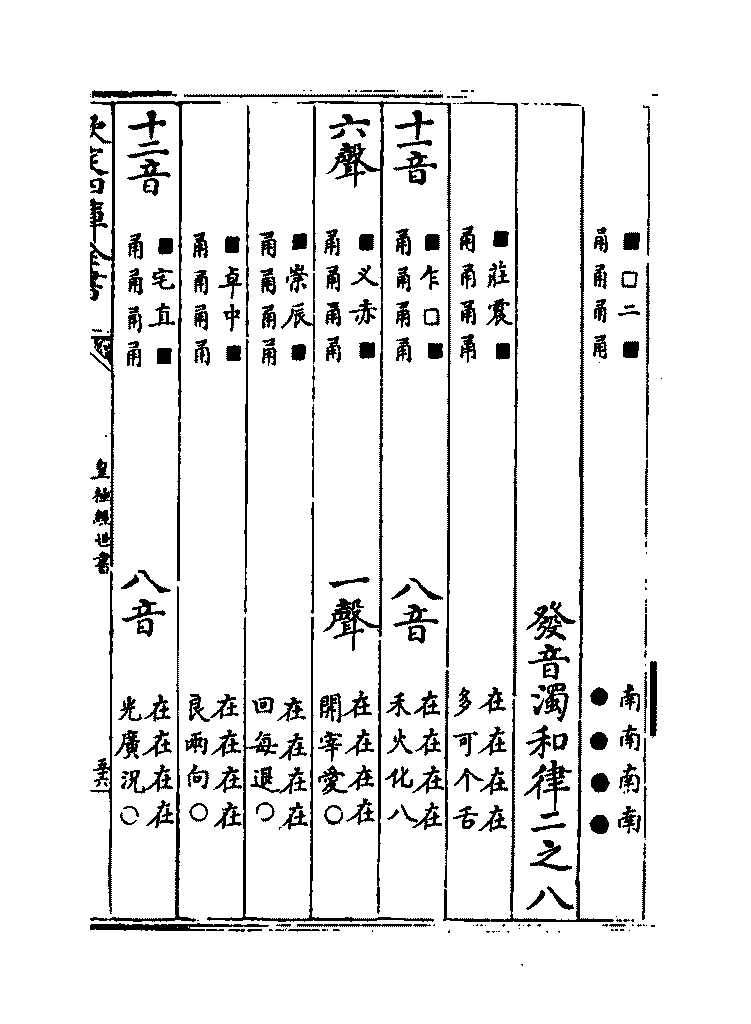 ■□二■
甬甬甬甬
南南南南
●●●●
發音濁和律二之八
■莊震■
甬甬甬甬
在在在在
多可个舌
十一音
■乍□■
甬甬甬甬
八音
在在在在
禾火化八
六聲
■叉赤■
甬甬甬甬
一聲
在在在在
開宰愛○
■崇辰■
甬甬甬甬
在在在在
回每退○
■卓中■
甬甬甬甬
在在在在
良兩向○
十二音
■宅直■
甬甬甬甬
八音
在在在在
光廣況○
欽定四庫全書
皇極經世書